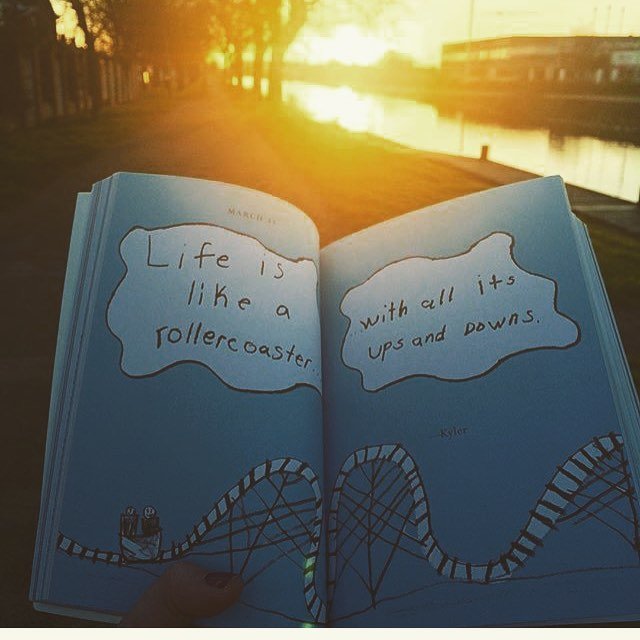 MARCH 31
Life is
like a
rollercoaster...
...with all its
ups and Downs.
—Kyler